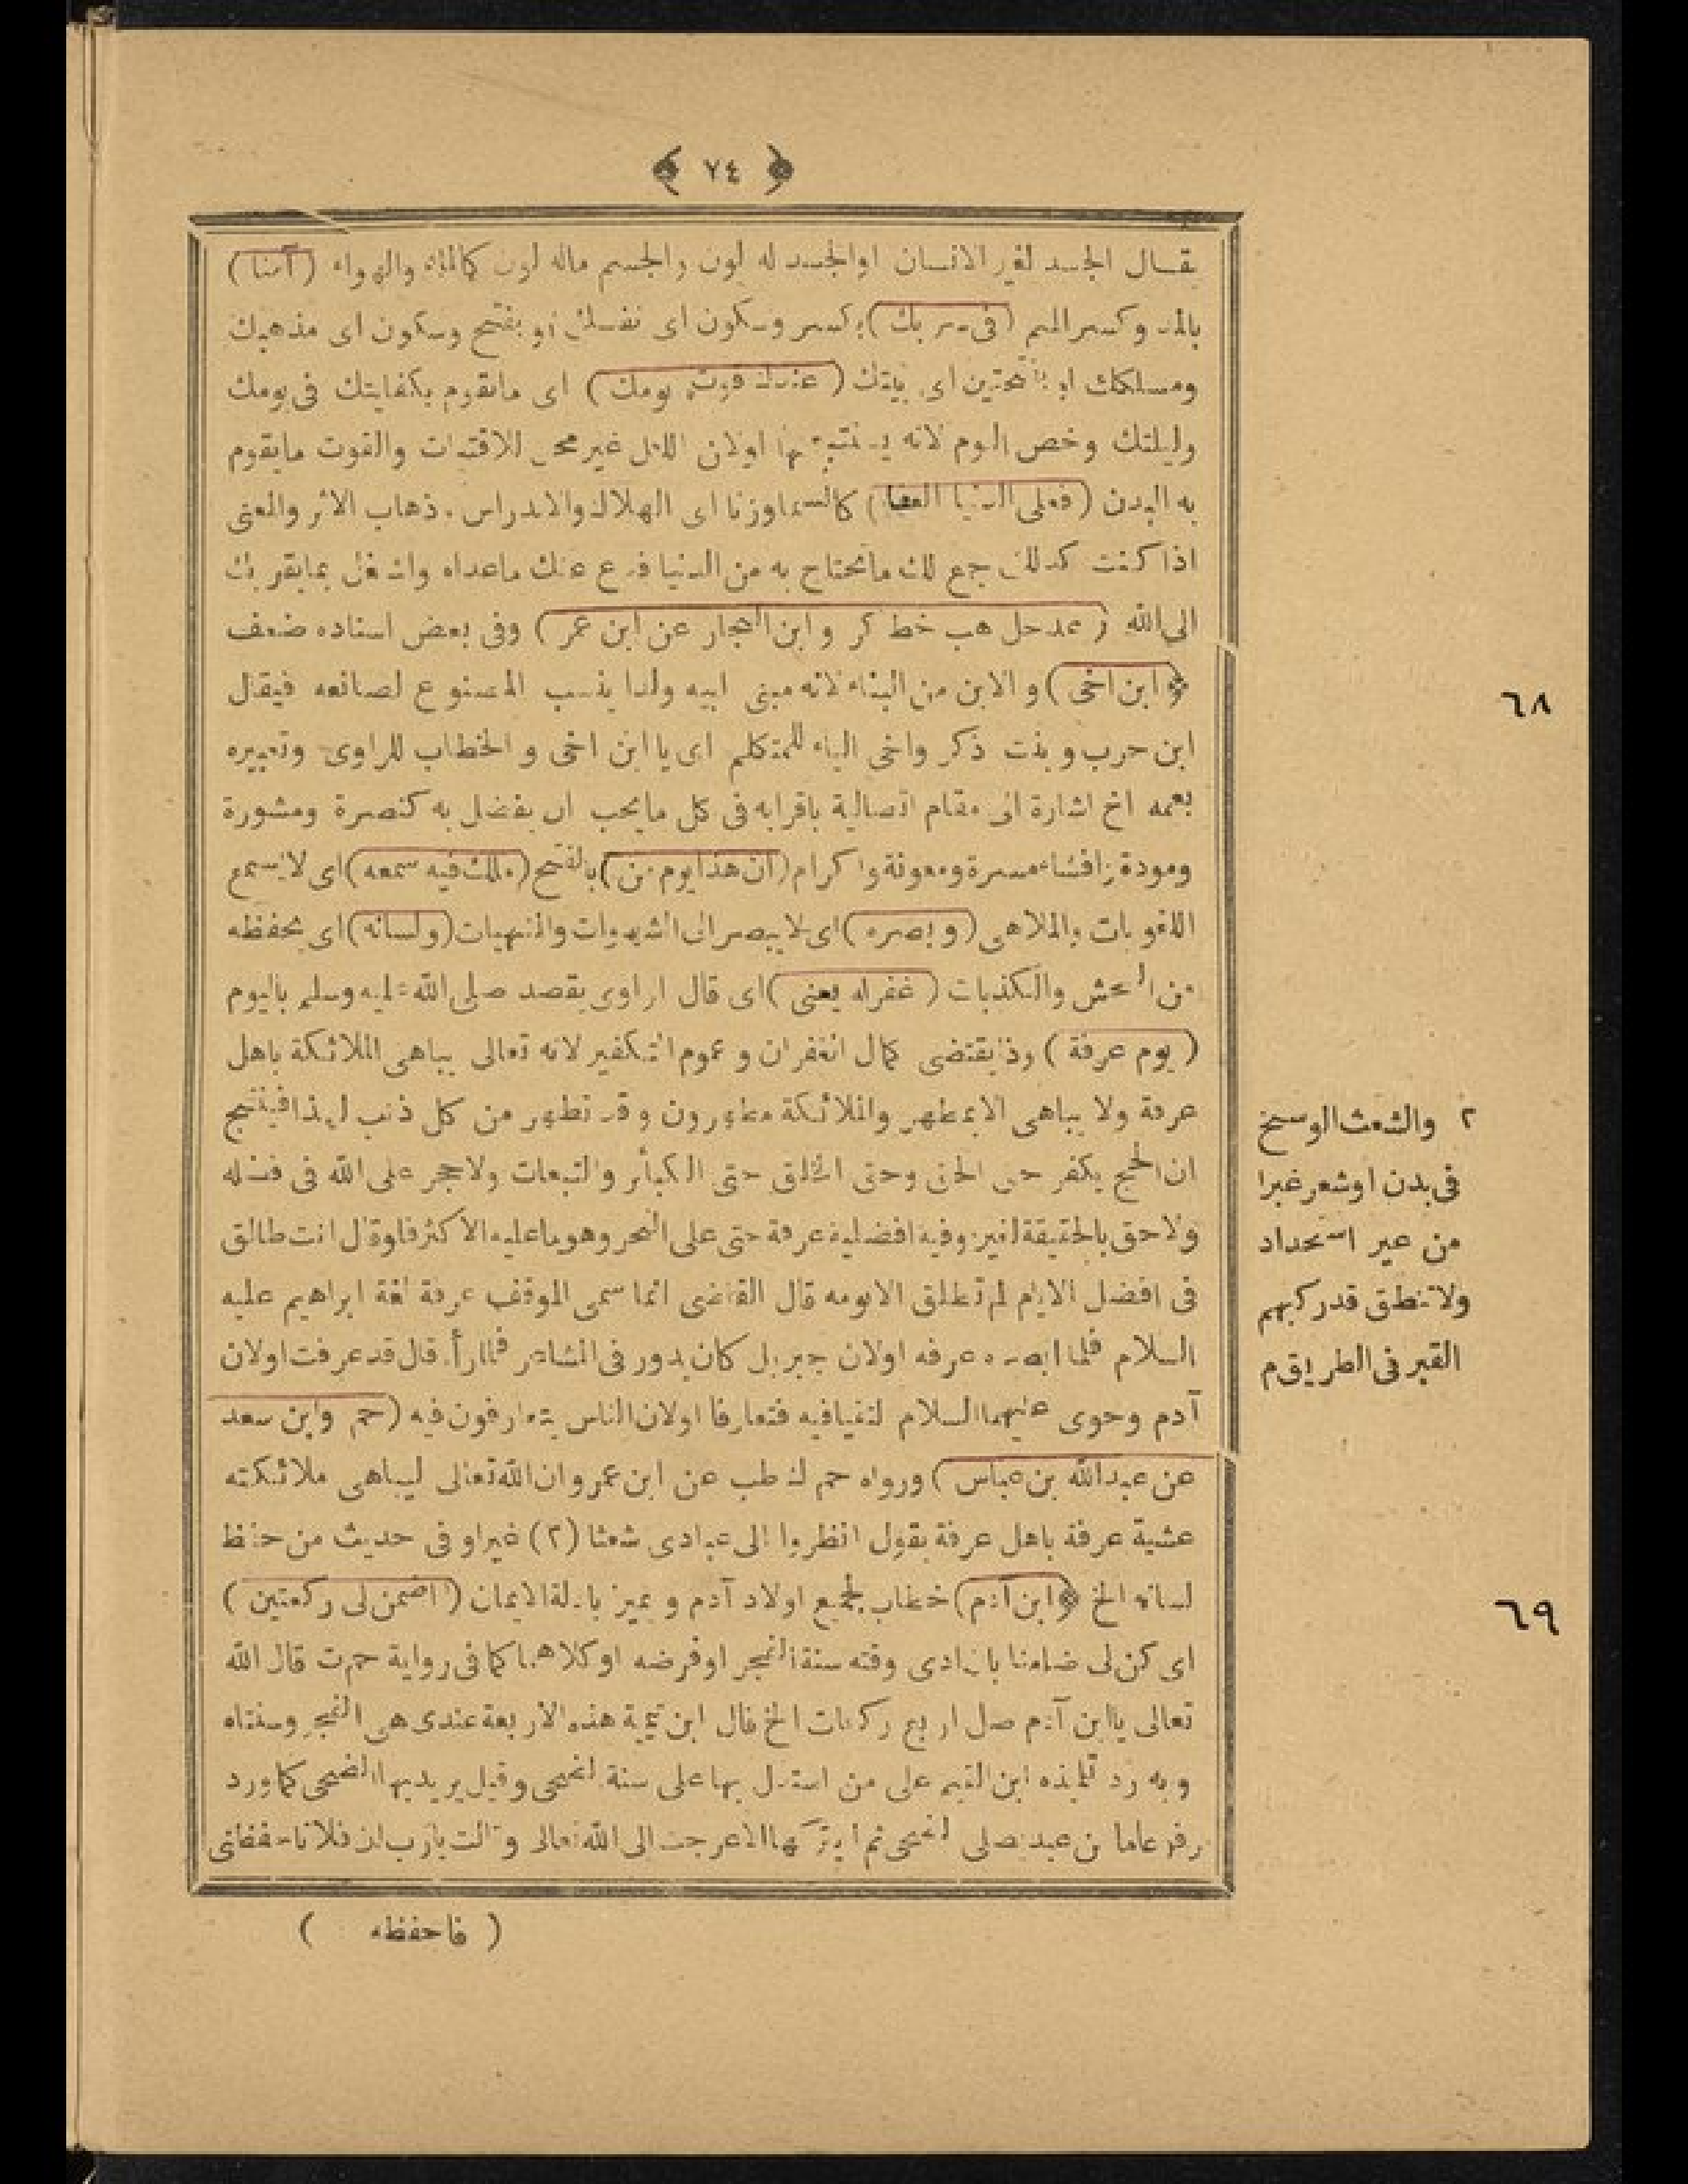 ﴿ ٧٤ ﴾
يقال الجسد لغير الانسان اوالجسد له لون والجسم ماله لون كالماء والهواء (آمنا)
بالمد وكسر الميم (فى سربك) بكسر وسكون اى نفسك او بفتح وسكون اى مذهبك
ومسلكك او بفتحتين اى بيتك (عندك قوت يومك) اى مايقوم بكفايتك فى يومك
وليلتك وخص اليوم لانه اولان الليل غير محل للاقتيات والقوت مايقوم
به البدن (فعلى الدنيا العفا) كالسما وزنا اى الهلاك والاندراس وذهاب الاثر والمعنى
اذا كنت كذلك جمع لك ماتحتاج به من الدنيا فدع عنك ماعداه واشتغل بمايقربك
الى الله (عد حل هب خط كر وابن النجار عن ابن عمر) وفى بعض اسناده ضعف
﴿ابن اخى) والابن من البناء لانه مبنى ابيه ولذا ينسب المصنوع لصانعه فيقال
ابن حرب وبنت ذكر واخى الياء للمتكلم اى يا ابن اخى والخطاب للراوى وتعبيره
بعمه اخ اشارة الى مقام اتصالية باقرابه فى كل مايحب ان يفضل به كنصرة ومشورة
ومودة وافشاء مسرة ومعونة واكرام (ان هذا يوم من) بالفتح (ملك فيه سمعه) اى لايسمع
اللغويات والملاهى (وبصره) اى لايبصر الى الشهوات والمنهيات (ولسانه) اى يحفظه
من الفحش والكذبات (غفرله يعنى) اى قال الراوى يقصد صلى الله عليه وسلم باليوم
(يوم عرفة) وذا يقتضى كمال الغفران وعموم التكفير لانه تعالى يباهى الملائكة باهل
عرفة ولا يباهى الابمطهر والملائكة مطهرون وقد تطهر من كل ذنب لهذا فينتج
ان الحج يكفر حق الحق وحق الخلق حتى الكبائر والتبعات ولاحجر على الله فى فضله
ولاحق بالحقيقة لغيره وفيه افضلية عرفة حتى على النحر وهو ماعليه الاكثر فلو قال انت طالق
فى افضل الايام لم تطلق الايومه قال القاضى انما سمى الموقف عرفة لغة ابراهيم عليه
السلام فلما ابصره عرفه اولان جبريل كان يدور فى المشاعر فلما رأه قال قد عرفت اولان
آدم وحوى عليهما السلام لتقيا فيه فتعارفا اولان الناس يتعارفون فيه (حم وابن سعد
عن عبدالله بن عباس) ورواه حم ك طب عن ابن عمرو ان الله تعالى ليباهى ملائكته
عشية عرفة باهل عرفة يقول انظروا الى عبادى شعثا (٢) غبرا وفى حديث من حفظ
لسانه الخ ﴿ابن آدم) خطاب لجميع اولاد آدم ويميز بادلة الايمان (اضمن لى ركعتين)
اى كن لى ضامنا بان ادى وقته سنة الفجر او فرضه او كلاهما كما فى رواية حم ت قال الله
تعالى ياابن آدم صل اربع ركعات الخ قال ابن تيمية هذه الاربعة عندى هى الفجر وسنتاه
وبه رد تلميذه ابن القيم على من استدل بها على سنة الضحى وقيل يريد بها الضحى كما ورد
مامن عبد يصلى الضحى ثم لم يتركها الاعرجت الى الله تعالى وقالت يارب ان فلانا حفظنى
( فاحفظه )
٦٨
٢ والشعث الوسخ
فى بدن اوشعر غبرا
من غير استحداد
ولاتنطق قدركبهم
القبر فى الطريق م
٦٩